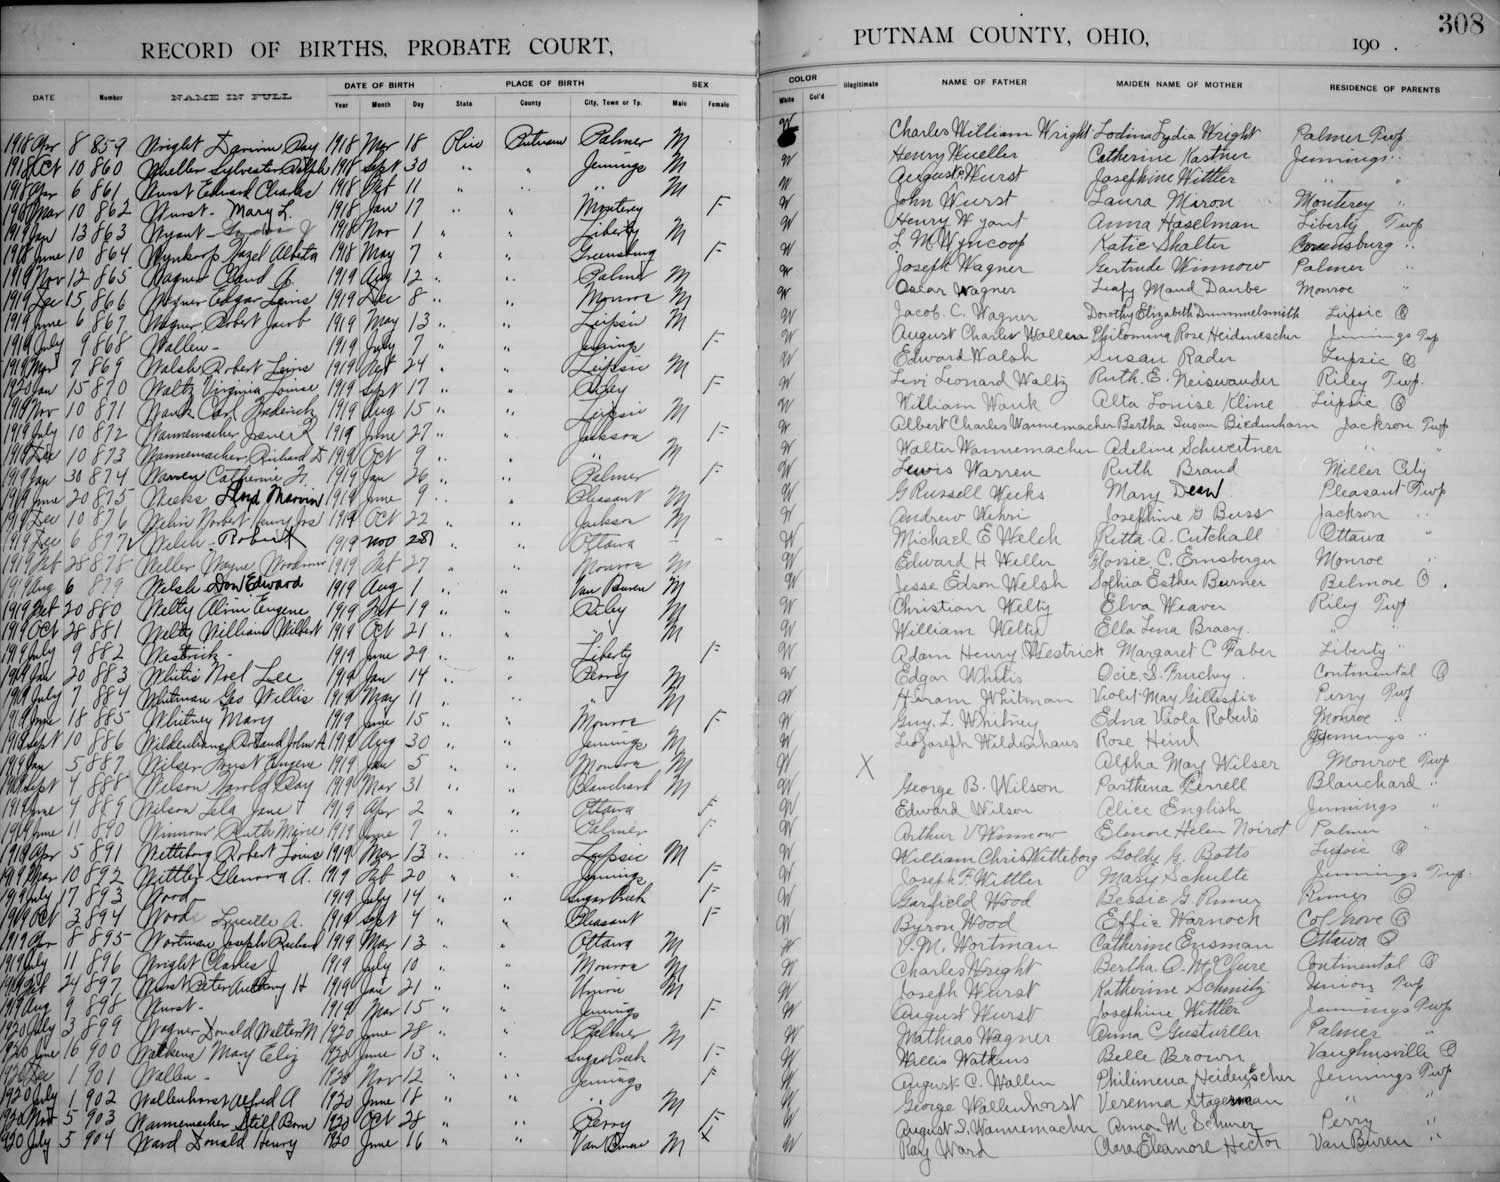 308
RECORD OF BIRTHS, PROBATE COURT, PUTNAM COUNTY, OHIO, 190 .
DATE Number NAME IN FULL DATE OF BIRTH PLACE OF BIRTH SEX COLOR Illegitimate NAME OF FATHER MAIDEN NAME OF MOTHER RESIDENCE OF PARENTS
Year Month Day State County City, Town or Tp. Male Female White Col'd
1918 Apr 8 859 Wright Ray 1918 Mar 18 Ohio Putnam Palmer M W Charles William Wright Lodina Lydia Wright Palmer Twp
1918 Oct 10 860 Mueller Sylvester Ralph 1918 Sept 30 " " Jennings M W Henry Mueller Catherine Kastner Jennings "
1918 Apr 6 861 Wurst Edward Charles 1918 11 " " " M W August Wurst Josephine Wittler " "
1918 Mar 10 862 Wurst - Mary L. 1918 Jan 17 " " Monterey F W John Wurst Laura Miron Monterey "
1919 Jan 13 863 Wyant 1918 Nov 1 " " Liberty M W Henry Wyant Anna Haselman Liberty Twp
1918 June 10 864 Wynkoop Hazel Alberta 1918 May 7 " " Greensburg F W L. M. Wyncoop Katie Shalter Greensburg "
1919 Nov 12 865 Wagner Claud A. 1919 Aug 12 " " Palmer M W Joseph Wagner Gertrude Winnow Palmer "
1919 Dec 15 866 Wagner Edgar Leins 1919 Dec 8 " " Monroe M W Oscar Wagner Leafy Maud Daube Monroe "
1919 June 6 867 Wagner Robert Jacob 1919 May 13 " " Leipsic M W Jacob C. Wagner Dorothy Elizabeth Drummelsmith Leipsic O
1919 July 9 868 Wallen - 1919 July 7 " " Jennings F W August Charles Wallen Philomina Rose Heidenescher Jennings Twp
1919 7 869 Walsh Robert Leins 1919 24 " " Leipsic M W Edward Walsh Susan Rader Leipsic O
1920 Jan 15 870 Waltz Virginia Louise 1919 Sept 17 " " Riley F W Levi Leonard Waltz Ruth. E. Neiswander Riley Twp.
1919 Nov 10 871 Wank Carl Frederick 1919 Aug 15 " " Leipsic M W William Wank Alta Louise Kline Leipsic O
1919 July 10 872 Wannemacher 1919 June 27 " " Jackson F W Albert Charles Wannemacher Bertha Susan Biedenharn Jackson Twp
1919 Dec 10 873 Wannemacher, Richard D 1919 Oct 9 " " " M W Walter Wannemacher Adeline Schwertner " "
1919 Jan 30 874 Warren Catherine 1919 Jan 26 " " Palmer F W Lewis Warren Ruth Brand Miller City
1919 June 20 875 Weeks Lloyd Marvin 1919 June 9 " " Pleasant M W G Russell Weeks Mary Dean Pleasant Twp
1919 Dec 10 876 Wehri Norbert Henry Jos 1919 Oct 22 " " Jackson M W Andrew Wehri Josephine G Buss Jackson "
1919 Dec 6 877 Welch - Robert 1919 Nov 28 " " Ottawa - - W Michael E Welch Retta A. Cutchall Ottawa "
1919 Feb 28 878 Weller Wayne Woodrow 1919 Feb 27 " " Monroe M W Edward H Weller Flossie C. Ernsberger Monroe "
1919 Aug 6 879 Welsh Don Edward 1919 Aug 1 " " Van Buren M W Jesse Edson Welsh Sophia Esther Burner Belmore O.
1919 Feb 20 880 Welty Alvin Eugene 1919 Feb 19 " " Riley M W Christian Welty Elva Weaver Riley Twp
1919 Oct 28 881 Welty William Wilbert 1919 Oct 21 " " " M W William Welty Ella Lena Bracy. " "
1919 July 9 882 Westrick - 1919 June 29 " " Liberty F W Adam Henry Westrick Margaret C Faber Liberty "
1919 Jan 20 883 Whitis Noel Lee 1919 Jan 14 " " Perry M W Edgar Whitis Ocie S. Fruchy. Continental O
1919 July 7 884 Whitman Geo Willis 1919 May 11 " " " M W Hiram Whitman Violet May Gillespie Perry Twp
1919 June 18 885 Whitney Mary 1919 June 15 " " Monroe F W Guy. L. Whitney Edna Viola Roberts Monroe "
1919 Sept 10 886 Wildenhaus Roland John A 1919 Aug 30 " " Jennings M W Leo Joseph Wildenhaus Rose Heinl Jennings "
1919 Jan 5 887 Wilser Eugene 1919 Jan 5 " " Monroe M W X Alpha May Wilser Monroe Twp
1919 Sept 4 888 Wilson Harold Ray 1919 Mar 31 " " Blanchard M W George B. Wilson Parthena Ferrell Blanchard "
1919 June 4 889 Wilson Lela Jane 1919 Apr 2 " " Ottawa F W Edward Wilson Alice English Jennings "
1919 June 11 890 Winnow Ruth Marie 1919 June 7 " " Palmer F W Arthur V Winnow Elenore Helen Noirot Palmer "
1919 Apr 5 891 Witteborg Robert Louis 1919 Mar 13 " " Leipsic M W William Chris Witteborg Goldy G. Botts Leipsic O
1919 Mar 10 892 Wittler Glenora A. 1919 Feb 20 " " Jennings F W Joseph F. Wittler Mary Schulte Jennings Twp.
1919 July 17 893 Wood 1919 July 14 " " Sugar Creek F W Garfield Wood Bessie G. Rimer Rimer O
1919 Oct 3 894 Wood Lucille A. 1919 Sept 4 " " Pleasant F W Byron Wood Effie Warnock Col Grove O
1919 Apr 8 895 Wortman Joseph Richard 1919 Mar 13 " " Ottawa M W P. M. Wortman Catherine Ensman Ottawa O
1919 July 11 896 Wright Charles J 1919 July 10 " " Monroe M W Charles Wright Bertha. O. McClure Continental O
1919 Feb 24 897 Wurst Peter Anthony H 1919 Jan 21 " " Union M W Joseph Wurst Katherine Schmitz Union Twp
1919 Aug 9 898 Wurst - 1919 Mar 15 " " Jennings F W August Wurst Josephine Wittler Jennings Twp
1920 July 3 899 Wagner Donald Walter M 1920 June 28 " " Palmer M W Mathias Wagner Anna C Gustwiller Palmer "
1920 June 16 900 Watkins Mary Eliz 1920 June 13 " " Sugar Creek F W Willis Watkins Belle Brown Vaughnsville O
1920 Dec 1 901 Wallen - 1920 Nov 12 " " Jennings F W August C. Wallen Philimena Heidenescher Jennings Twp
1920 July 1 902 Wallenhorst Alfred A 1920 June 18 " " " M W George Wallenhorst Verenna Stageman " "
1920 Nov 5 903 Wannemacher Still Born 1920 Oct 28 " " Perry F W August S. Wannemacher Anna M. Schurer Perry "
1920 July 5 904 Ward Donald Henry 1920 June 16 " " Van Buren M W Ray Ward Clara Eleanore Hector Van Buren "